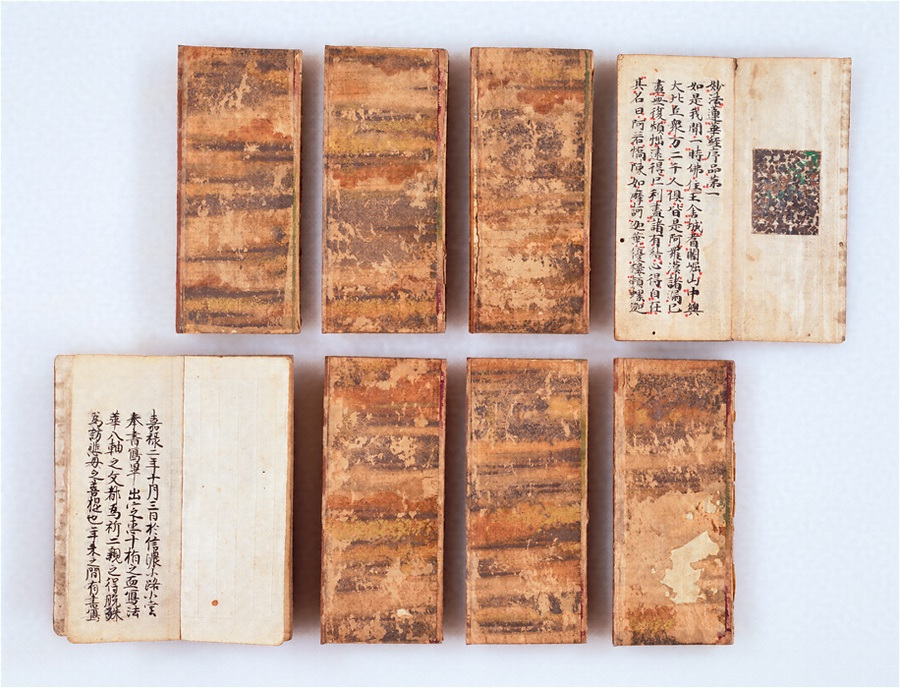 妙法蓮華經序品第一
如是我聞一時佛住王舍城耆闍崛山中與
大比丘衆万二千人俱皆是阿羅漢諸漏已
盡無復煩惱逮得己利盡諸有結心得自在
其名曰阿若憍陳如摩訶迦葉優樓頻螺迦
嘉禎二年十月三日於信濃小路小堂
奉書寫畢 出定恵十指之血寫法
華八軸之文都為祈二親之得脱殊
為訪悲母之菩提也二年来之間有書寫